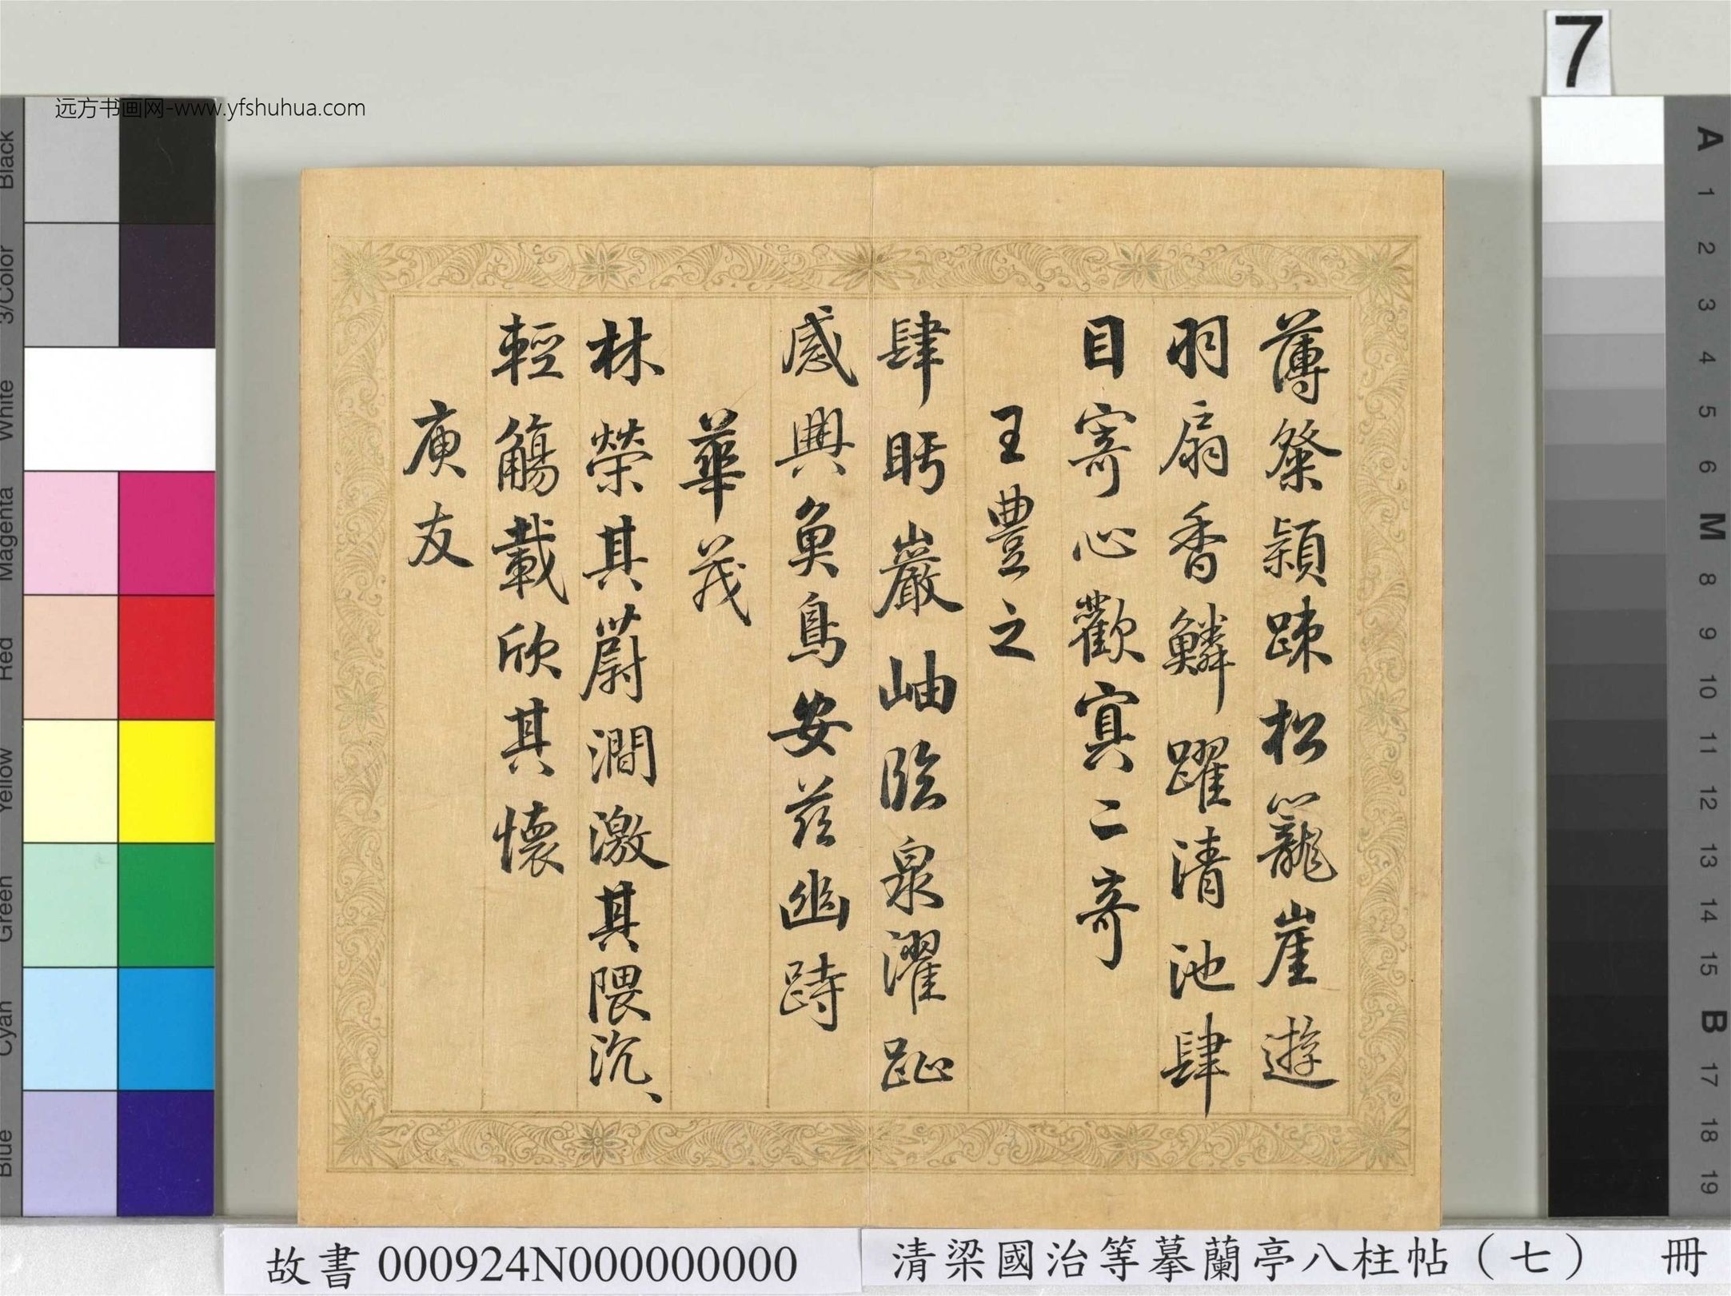 薄粲穎踈松籠崖遊
羽扇香鱗躍清池肆
目寄心歡冥二奇
王豐之
肆眄巖岫臨泉濯趾
感興魚鳥安茲幽跱
華茂
林榮其蔚澗激其隈汎、
輕觴載欣其懷
庾友
远方书画网-www.yfshuhua.com
7
Black
3/Color
White
Magenta
Red
Yellow
Green
Cyan
Blue
A
1
2
3
4
5
6
M
8
9
10
11
12
13
14
15
B
17
18
19
故書 000924N000000000
清梁國治等摹蘭亭八柱帖（七） 冊